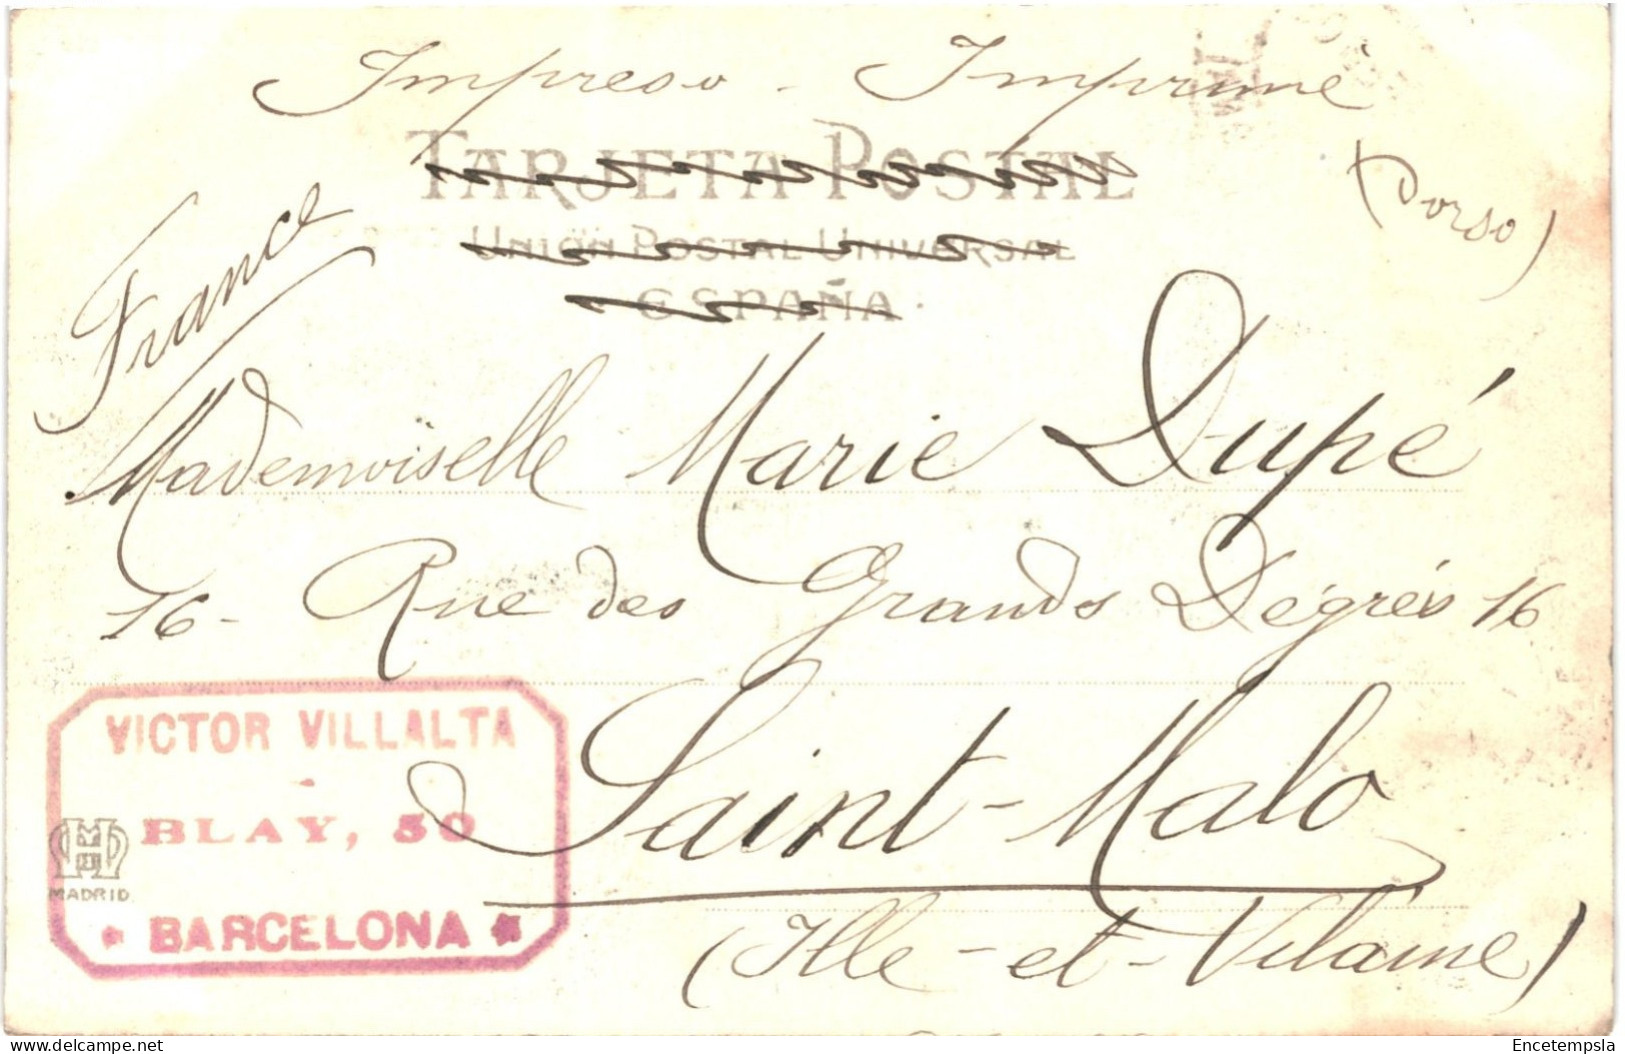 Impreso - Imprimé
TARJETA POSTAL
(Dorso)
UNIÓN POSTAL UNIVERSAL
ESPAÑA
France
Mademoïselle Marie Dupé
16 - Rue des Grands Dégrés 16
Saint-Malo
(Ille-et-Vilaine)
VICTOR VILLALTA
-
BLAY, 50
BARCELONA
HM
MADRID.
Encetempsla